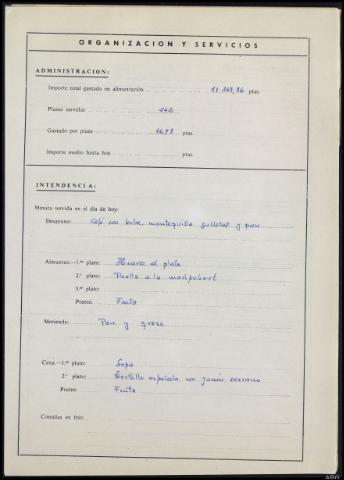 ORGANIZACION Y SERVICIOS
ADMINISTRACION:
Importe total gastado en alimentación 11.369,96 ptas.
Plazas servidas 242
Gastado por plaza 46.98 ptas.
Importe medio hasta hoy ptas.
INTENDENCIA:
Minuta servida en el día de hoy:
Desayuno: Café con leche, mantequilla y pan
Almuerzo.—1.er plato: Huevo al plato
2.º plato: Paella a la
3.er plato:
Postre: Fruta
Merienda: Pan y queso
Cena.—1.er plato: Sopa
2.º plato: Tortilla española con jamón serrano
Postre: Fruta
Comidas en frío: